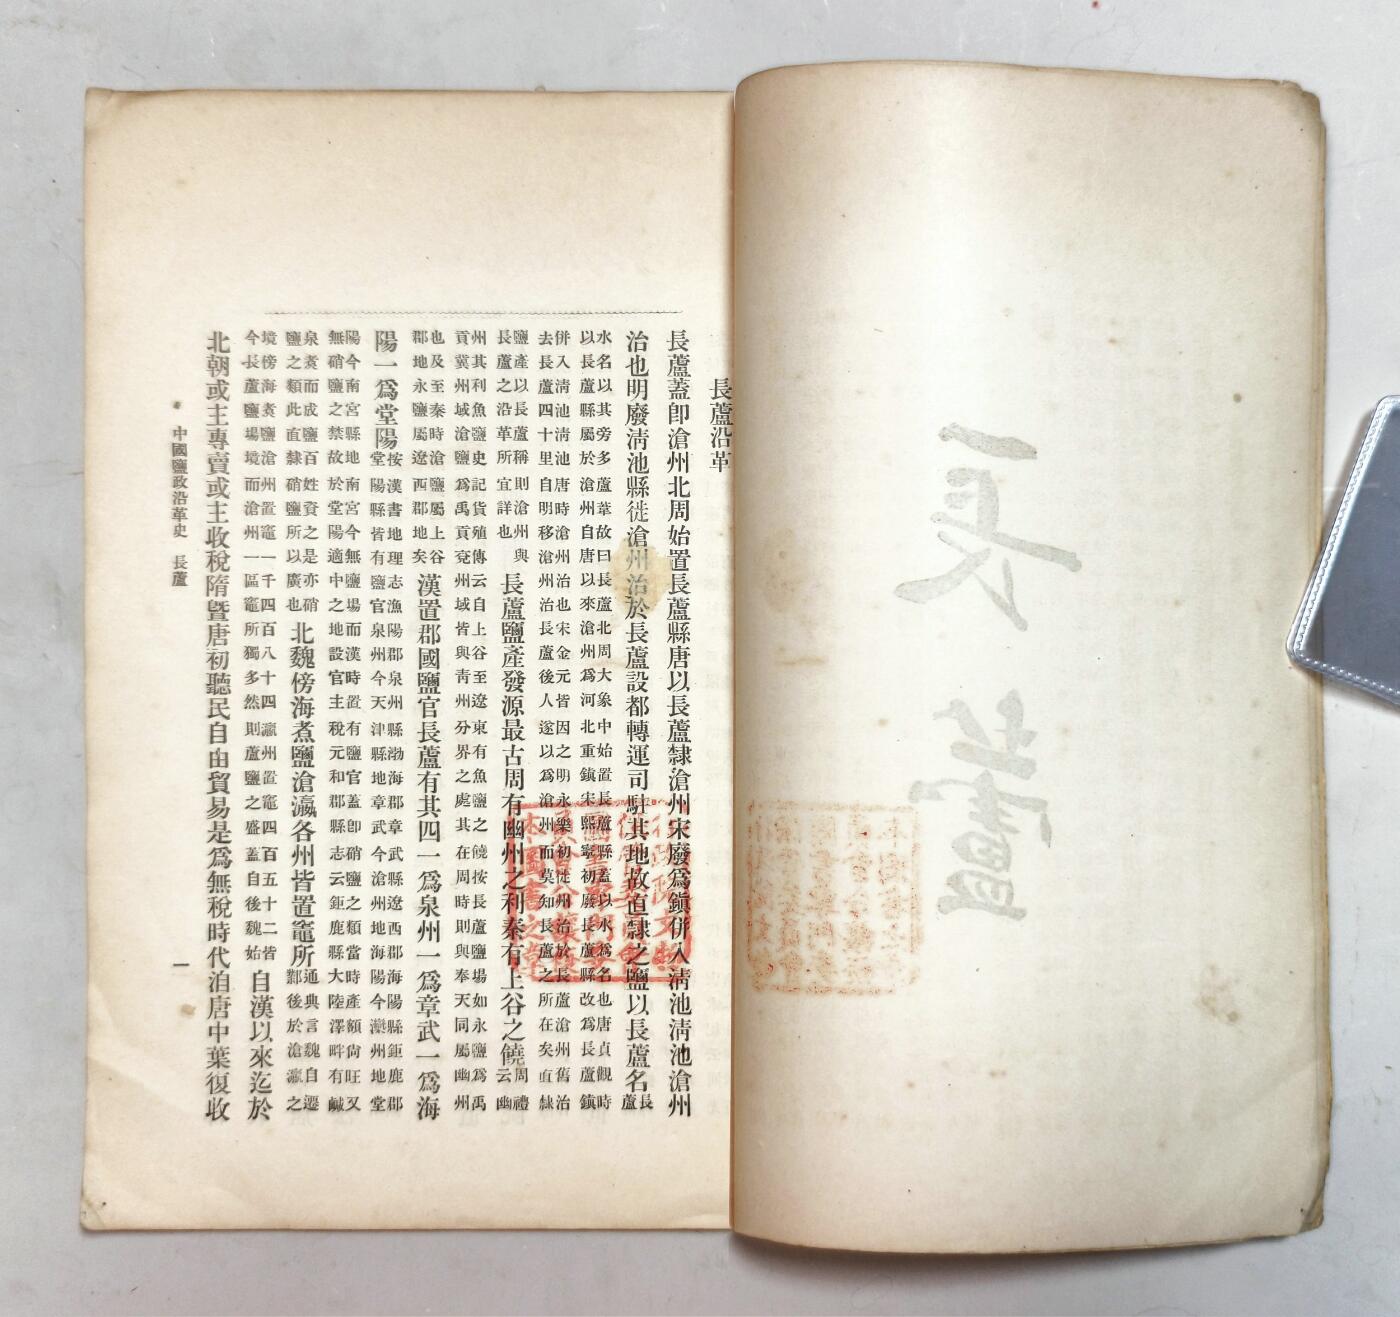 長蘆
長蘆沿革
長蘆蓋卽滄州北周始置長蘆縣唐以長蘆隸滄州宋廢爲鎭併入淸池淸池滄州
治也明廢淸池縣徙滄州治於長蘆設都轉運司駐其地故直隸之鹽以長蘆名長蘆
水名以其旁多蘆葦故曰長蘆北周大象中始置長蘆縣蓋以水爲名也唐貞觀時
以長蘆縣屬於滄州自唐以來滄州爲河北重鎭宋熙寧初廢長蘆縣改爲長蘆鎭
併入淸池淸池唐時滄州治也宋金元皆因之明永樂初徙州治於長蘆滄州舊治
去長蘆四十里自明移滄州治長蘆後人遂以爲滄州而莫知長蘆之所在矣直隸
鹽產以長蘆稱則滄州與
長蘆之沿革所宜詳也
長蘆鹽產發源最古周有幽州之利秦有上谷之饒周禮云幽
州其利魚鹽史記貨殖傳云自上谷至遼東有魚鹽之饒按長蘆鹽場如永鹽爲禹
貢冀州域滄鹽爲禹貢兗州域皆與靑州分界之處其在周時則與奉天同屬幽州
也及至秦時滄鹽屬上谷
郡地永鹽屬遼西郡地矣
漢置郡國鹽官長蘆有其四一爲泉州一爲章武一爲海
陽一爲堂陽
按漢書地理志漁陽郡泉州縣渤海郡章武縣遼西郡海陽縣鉅鹿郡
堂陽縣皆有鹽官泉州今天津縣地章武今滄州地海陽今灤州地堂
陽今南宮縣地南宮今無鹽場而漢時置有鹽官蓋卽硝鹽之類當時產額尙旺又
無硝鹽之禁故於堂陽適中之地設官主稅元和郡縣志云鉅鹿縣大陸澤畔有鹹
泉煑而成鹽百姓資之是亦硝
鹽之類此直隸硝鹽所以廣也
北魏傍海煮鹽滄瀛各州皆置竈所
通典言魏自遷
鄴後於滄瀛之
境傍海煑鹽滄州置竈一千四百八十四瀛州置竈四百五十二皆
今長蘆鹽場境而滄州一區竈所獨多然則蘆鹽之盛蓋自後魏始
自漢以來迄於
北朝或主專賣或主收稅隋曁唐初聽民自由貿易是爲無稅時代洎唐中葉復收
中國鹽政沿革史 長蘆
一